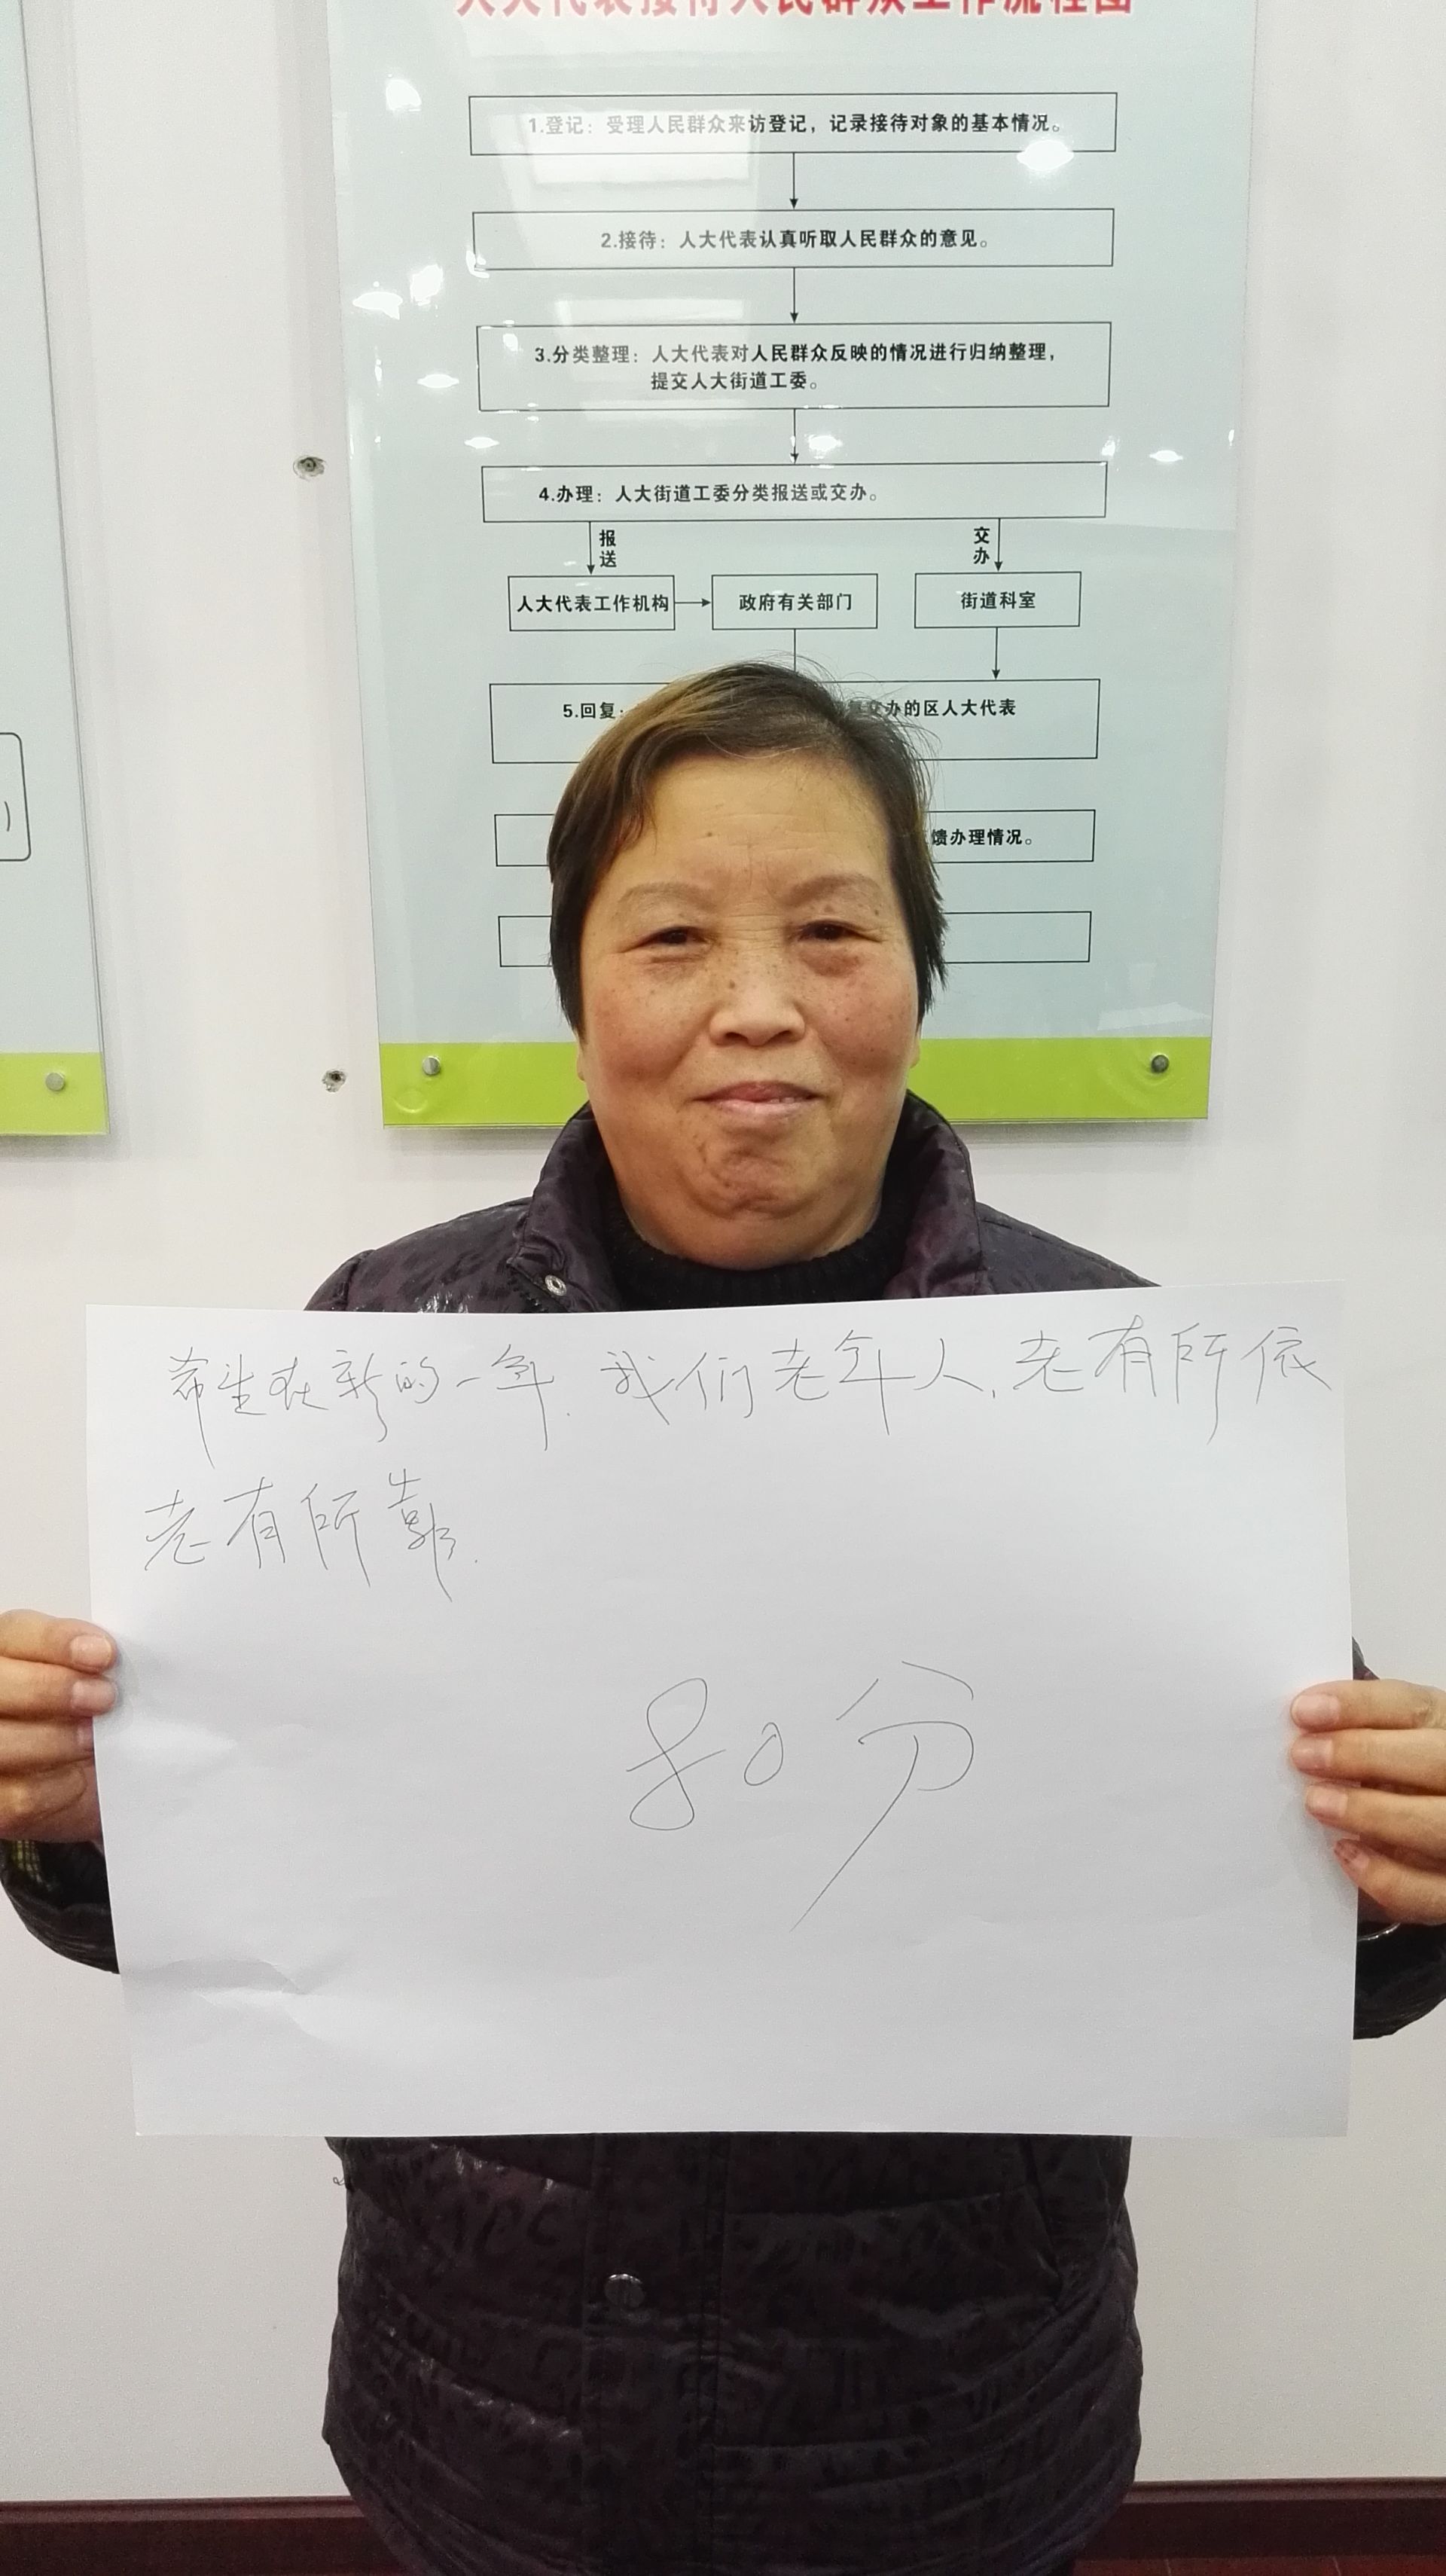 人大代表接待人民群众工作流程图
1.登记：受理人民群众来访登记，记录接待对象的基本情况。
2.接待：人大代表认真听取人民群众的意见。
3.分类整理：人大代表对人民群众反映的情况进行归纳整理，
提交人大街道工委。
4.办理：人大街道工委分类报送或交办。
报送
交办
人大代表工作机构
政府有关部门
街道科室
5.回复：
交办的区人大代表
馈办理情况。
希望在新的一年.我们老年人.老有所依
老有所靠.
80分